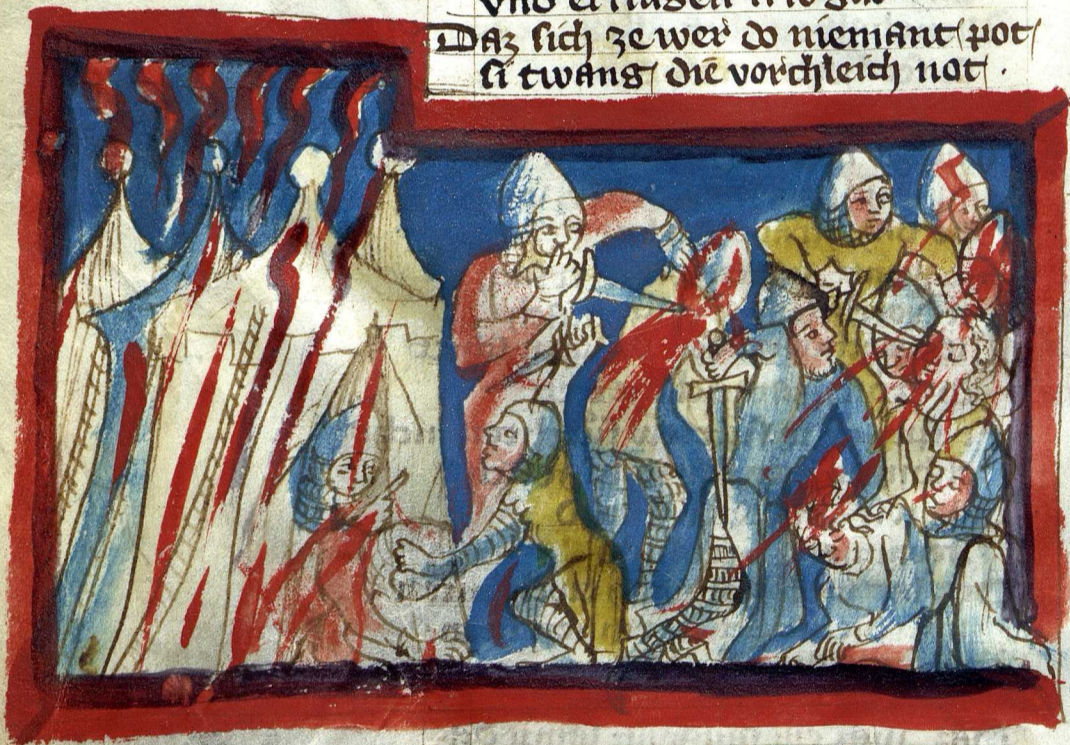 Daz sich ze wer do niemant pot
si twang die vorchleich not .